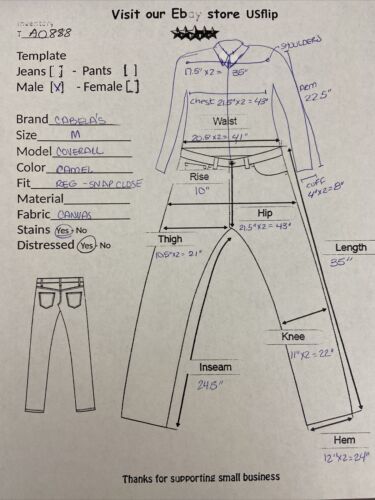 Visit our Ebay store USflip
Inventory
T AO888
Template
Jeans [ ] - Pants [ ]
Male [X] - Female [ ]
Brand CABELA'S
Size M
Model COVERALL
Color CAMEL
Fit REG - SNAP CLOSE
Material
Fabric CANVAS
Stains Yes - No
Distressed Yes - No
SHOULDERS
17.5"X2 = 35"
ARM
22.5"
Chest 21.5"X2 = 43"
Waist
20.5"X2 = 41"
CUFF
4"X2=8"
Rise
10"
Hip
21.5"X2 = 43"
Thigh
10.5"X2 = 21"
Length
35"
Knee
11"X2 = 22"
Inseam
24.5"
Hem
12"X2=24"
Thanks for supporting small business